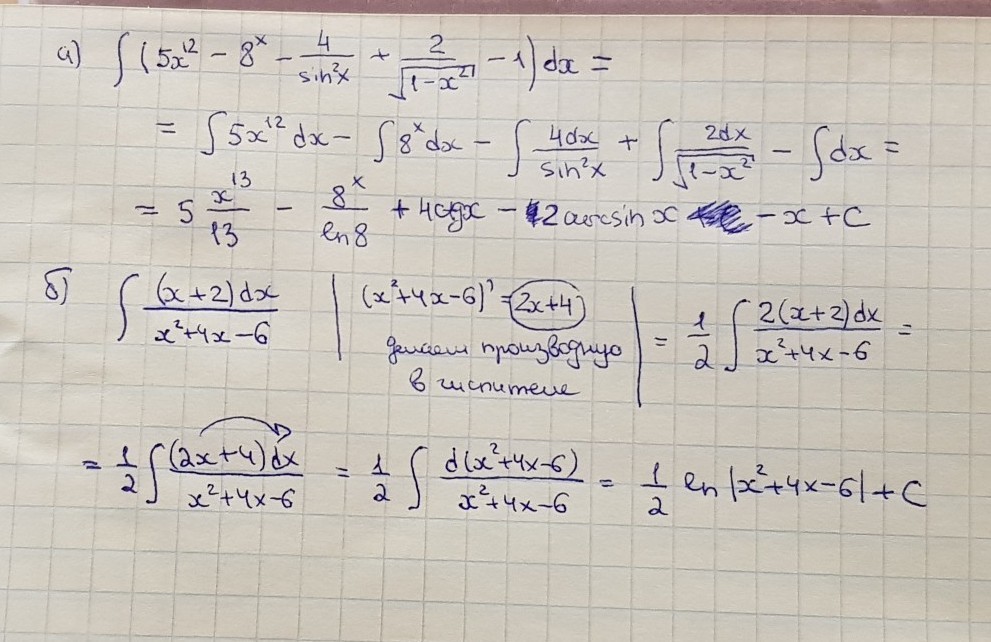 а) ∫ (5x¹² − 8ˣ − 4/sin²x + 2/√(1−x²) − 1) dx =
= ∫5x¹² dx − ∫8ˣ dx − ∫ 4dx/sin²x + ∫ 2dx/√(1−x²) − ∫dx =
= 5 x¹³/13 − 8ˣ/ln8 + 4ctgx − 2 arcsin x − x + C
б) ∫ (x+2)dx/(x²+4x−6) | (x²+4x−6)' = 2x+4
делаем производную
в числителе | = 1/2 ∫ 2(x+2)dx/(x²+4x−6) =
= 1/2 ∫ (2x+4)dx/(x²+4x−6) = 1/2 ∫ d(x²+4x−6)/(x²+4x−6) = 1/2 ln |x²+4x−6| + C